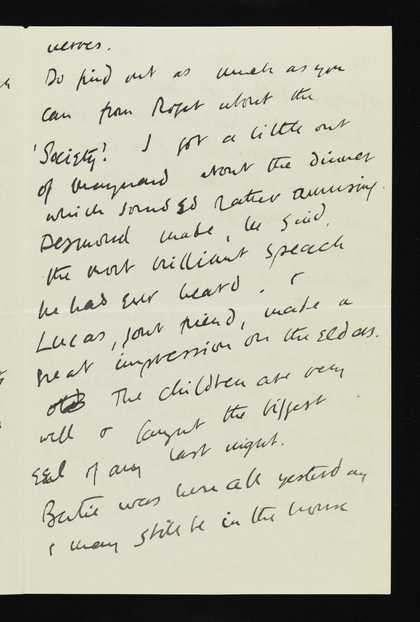 nerves.
Do find out as much as you
can from Roger about the
'Society'. I got a little out
of Maynard about the dinner
which sounded rather amusing.
Desmond made, he said,
the most brilliant speech
he had ever heard. &
Lucas, your friend, made a
great impression on the elders.
The children are very
well & caught the biggest
eel of any last night.
Bertie was here all yesterday
& may still be in the house